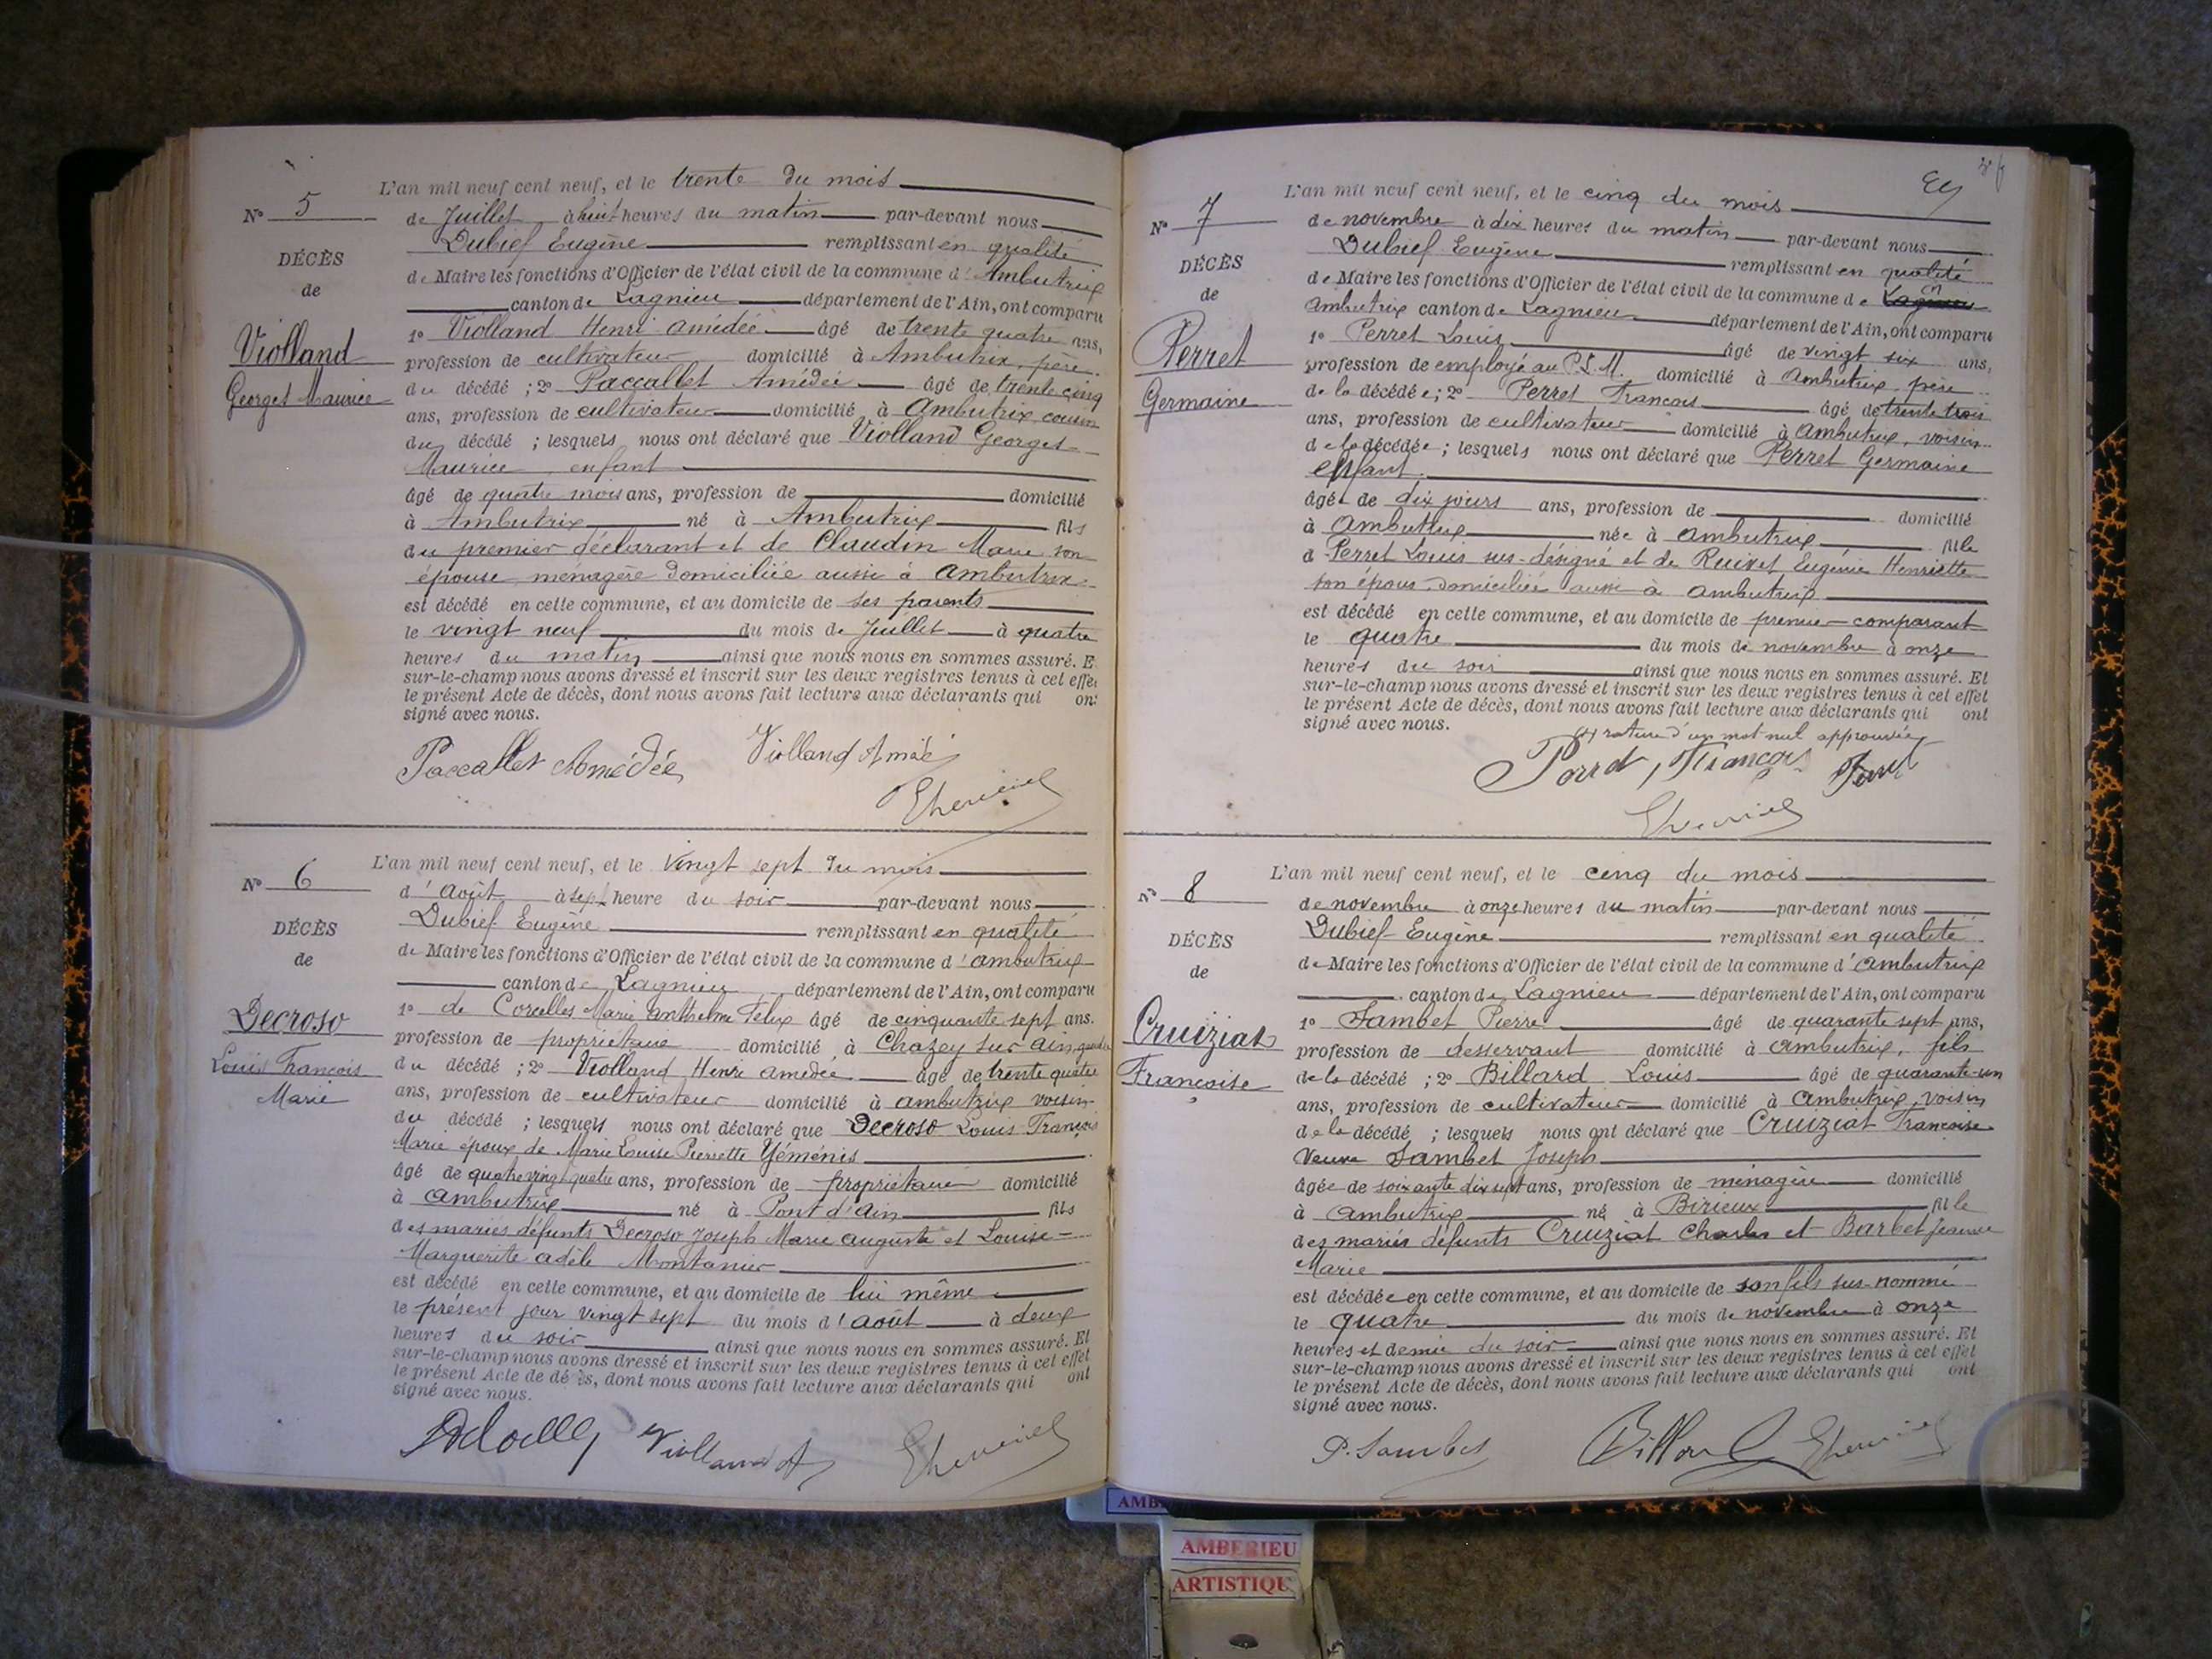 L'an mil neuf cent neuf, et le trente du mois
N° 5
de Juillet à huit heures du matin par-devant nous
Dubief Eugène remplissant en qualité
DÉCÈS
de Maire les fonctions d'Officier de l'état civil de la commune d'Ambutrix
de
canton de Lagnieu département de l'Ain, ont comparu
1° Violland Henri Amédée âgé de trente quatre ans,
Violland
profession de cultivateur domicilié à Ambutrix, père
Georges Maurice
du décédé ; 2° Paccallet Amédée âgé de trente cinq
ans, profession de cultivateur domicilié à Ambutrix cousin
du décédé ; lesquels nous ont déclaré que Violland Georges
Maurice, enfant
âgé de quatre mois ans, profession de domicilié
à Ambutrix né à Ambutrix fils
du premier déclarant et de Claudin Marie son
épouse, ménagère domiciliée aussi à Ambutrix
est décédé en cette commune, et au domicile de ses parents
le vingt neuf du mois de Juillet à quatre
heures du matin ainsi que nous nous en sommes assuré. E
sur-le-champ nous avons dressé et inscrit sur les deux registres tenus à cet effet
le présent Acte de décès, dont nous avons fait lecture aux déclarants qui ont
signé avec nous.
Paccallet Amédée Violland Amédé
L'an mil neuf cent neuf, et le vingt sept du mois
N° 6
d'août à sept heure du soir par-devant nous
Dubief Eugène remplissant en qualité
DÉCÈS
de Maire les fonctions d'Officier de l'état civil de la commune d'ambutrix
de
canton de Lagnieu département de l'Ain, ont comparu
1° de Corcelles Marie Anthelme Félix âgé de cinquante sept ans.
Decroso
profession de propriétaire domicilié à Chazey sur Ain,
Louis François
du décédé ; 2° Violland Henri Amédée âgé de trente quatre
Marie
ans, profession de cultivateur domicilié à ambutrix voisin
du décédé ; lesquels nous ont déclaré que Decroso Louis François
Marie époux de Marie Louise Pierrette Yéménis
âgé de quatre vingt quatre ans, profession de propriétaire domicilié
à ambutrix né à Pont d'Ain fils
des mariés défunts Decroso Joseph Marie Auguste et Louise-
Marguerite adèle Montanier
est décédé en cette commune, et au domicile de lui même
le présent jour vingt sept du mois d'août à deux
heures du soir ainsi que nous nous en sommes assuré. Et
sur-le-champ nous avons dressé et inscrit sur les deux registres tenus à cet effet
le présent Acte de décès, dont nous avons fait lecture aux déclarants qui ont
signé avec nous.
Violland A
L'an mil neuf cent neuf, et le cinq du mois
N° 7
de novembre à dix heures du matin par-devant nous
Dubief Eugène remplissant en qualité
DÉCÈS
de Maire les fonctions d'Officier de l'état civil de la commune de Lagnieu
de
ambutrix canton de Lagnieu département de l'Ain, ont comparu
1° Perret Louis âgé de vingt six ans,
Perret
profession de employé au P.L.M. domicilié à Ambutrix, père
Germaine
de la décédée ; 2° Perret François âgé de trente trois
ans, profession de cultivateur domicilié à Ambutrix, voisin
de la décédée ; lesquels nous ont déclaré que Perret Germaine
enfant
âgée de dix jours ans, profession de domicilié
à Ambutrix née à ambutrix fille
d Perret Louis sus-désigné et de Ruivet Eugénie Henriette
son épous domiciliée aussi à ambutrix
est décédé en cette commune, et au domicile de premier comparant
le quatre du mois de novembre à onze
heures du soir ainsi que nous nous en sommes assuré. Et
sur-le-champ nous avons dressé et inscrit sur les deux registres tenus à cet effet
le présent Acte de décès, dont nous avons fait lecture aux déclarants qui ont
signé avec nous.
rature d'un mot nul approuvée
Perret, François Perret
L'an mil neuf cent neuf, et le cinq du mois
N° 8
de novembre à onze heures du matin par-devant nous
Dubief Eugène remplissant en qualité
DÉCÈS
de Maire les fonctions d'Officier de l'état civil de la commune d'ambutrix
de
canton de Lagnieu département de l'Ain, ont comparu
1° Sambet Pierre âgé de quarante sept ans,
Cruiziat
profession de desservant domicilié à Ambutrix, fils
Françoise
de la décédé ; 2° Billard Louis âgé de quarante-un
ans, profession de cultivateur domicilié à Ambutrix, voisin
de la décédé ; lesquels nous ont déclaré que Cruiziat Françoise
Veuve Sambet Joseph
âgée de soixante dix sept ans, profession de ménagère domicilié
à Ambutrix né à Birieux fille
des mariés défunts Cruiziat Charles et Barbet Jeanne
Marie
est décédée en cette commune, et au domicile de son fils sus-nommé
le quatre du mois de novembre à onze
heures et demie du soir ainsi que nous nous en sommes assuré. Et
sur-le-champ nous avons dressé et inscrit sur les deux registres tenus à cet effet
le présent Acte de décès, dont nous avons fait lecture aux déclarants qui ont
signé avec nous.
P. Sambet Billard
AMBERIEU
ARTISTIQU